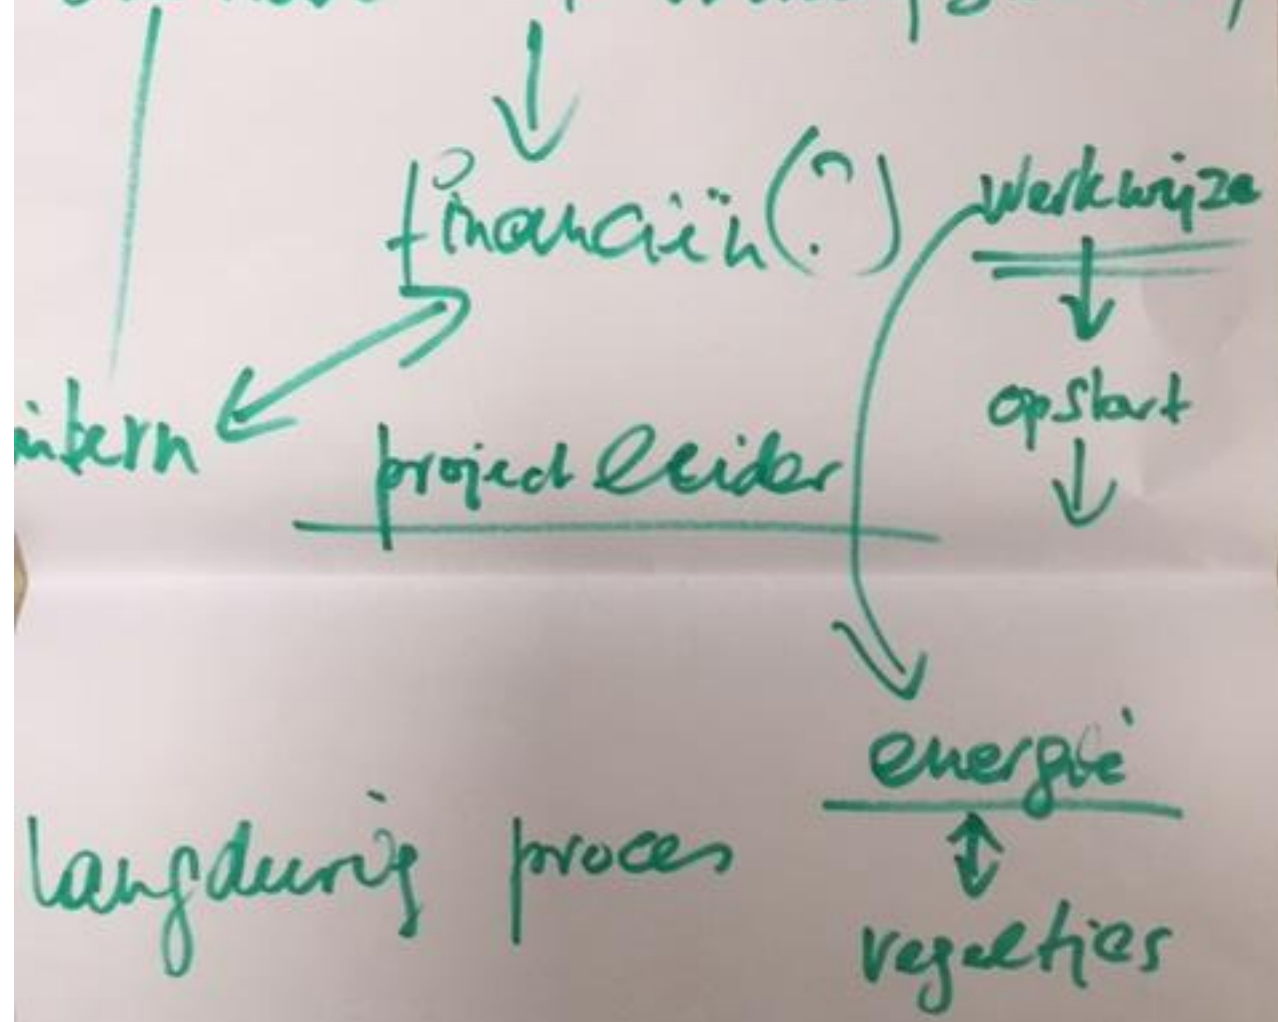 financiën (?)
werkwijze
opstart
intern
projectleider
energie
langdurig proces
regeltjes